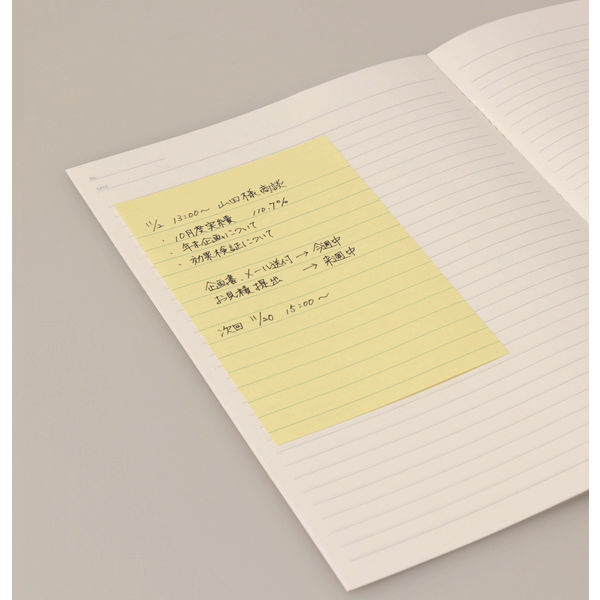 11/2 13:00～ 山田様商談
・10月度実績 110.7%
・年末企画について
・効果検証について
企画書、メール送付 → 今週中
お見積提出 → 来週中
次回 11/20 15:00～